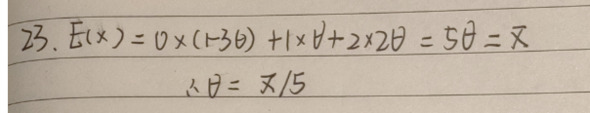 23. E(x) = 0×(1-3θ) + 1×θ + 2×2θ = 5θ = x̄
∴ θ = x̄/5